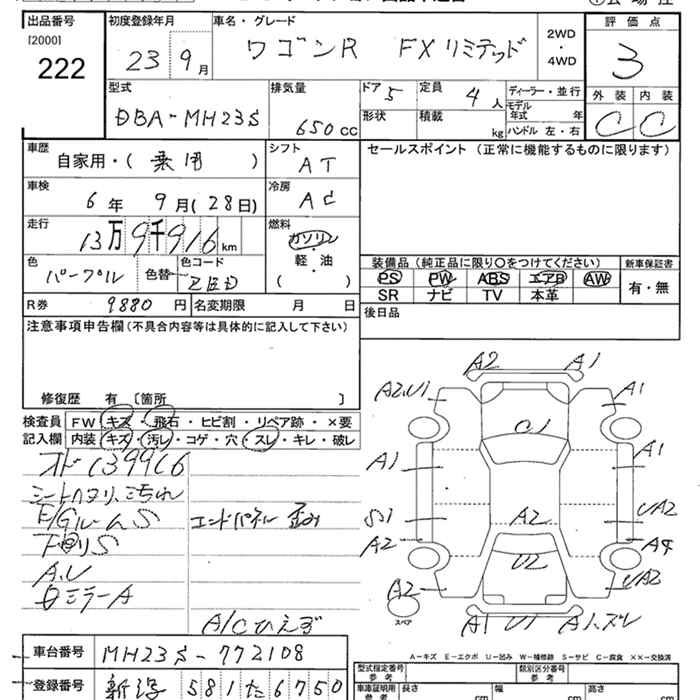 出品番号 初度登録年月 車名・グレード 評価点
[2000]
222
23 9月
ワゴンR FXリミテッド
2WD
・
4WD
3
外装 内装
C C
型式 排気量 ドア 定員 ディーラー・並行
DBA-MH23S 650CC 5 4人
形状 積載 kg
モデル年式 年
ハンドル 左・右
車歴 シフト セールスポイント (正常に機能するものに限ります)
自家用・( 乗用 ) AT
車検 冷房
6年 9月(28日) AC
走行 燃料
13万9千916km
ガソリン
軽・油
( )
色 色替 色コード
パープル
装備品 (純正品に限り〇をつけてください) 新車保証書
PS PW ABS エアB AW 有・無
SR ナビ TV 本革
R券 9880円 名変期限 月 日
後日品
注意事項申告欄 (不具合内容等は具体的に記入して下さい)
修復歴 有 〔箇所 〕
検査員 FW キズ・飛石・ヒビ割・リペア跡・×要
記入欄 内装 キズ・汚レ・コゲ・穴・スレ・キレ・破レ
E/GルームS エンドパネル歪み
下回リS
A.U
ミラーA
A/Cひえず
A2 A1
A2,U1 A1
C1
A1 A1
S1 A2 UA2
A2 A4
U2
A2 UA2
スペア
A1 U1 A1.ズレ
A-キズ E-エクボ U-凹み W-補修跡 S-サビ C-腐食 ××-交換済
車台番号 MH23S-772108
登録番号 581 た 6750
型式指定番号 参考 類別区分番号 参考
車庫証明用 参考 長さ cm 幅 cm 高さ cm